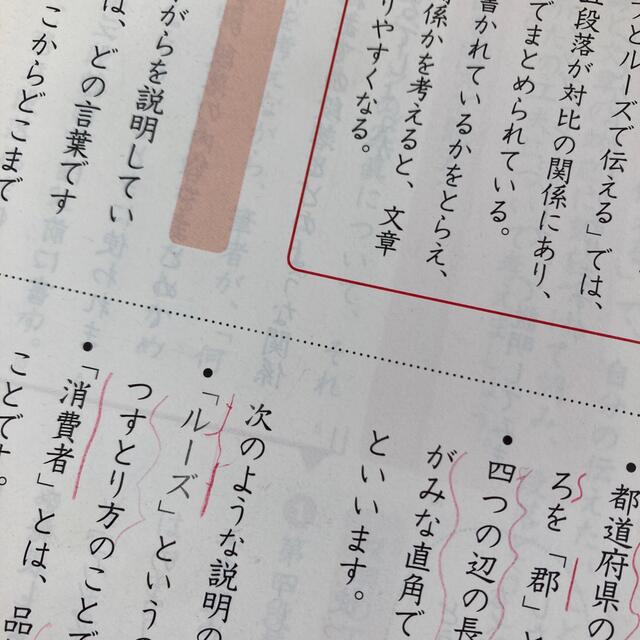 つとルーズで伝える」では、
段落が対比の関係にあり、
でまとめられている。
書かれているかをとらえ、
係かを考えると、文章
りやすくなる。
がらを説明してい
は、どの言葉です
こからどこまで
都道府県の
ろを「郡」と
●四つの辺の長
がみな直角で
といいます。
次のような説明の
●「ルーズ」というの
つすとり方のことで
●「消費者」とは、品
ことです。